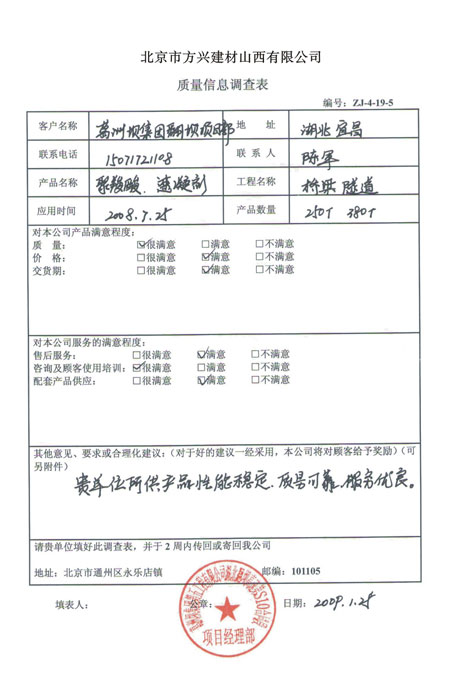 北京市方兴建材山西有限公司
质量信息调查表
编号：ZJ-4-19-5
客户名称 葛洲坝集团 项目部 地 址 湖北宜昌
联系电话 15071721108 联 系 人 陈军
产品名称 聚羧酸、速凝剂 工程名称 桥梁 隧道
应用时间 2008.7.25 产品数量 250T 380T
对本公司产品满意程度：
质 量： ☑很满意 □满意 □不满意
价 格： □很满意 ☑满意 □不满意
交货期： □很满意 ☑满意 □不满意
对本公司服务的满意程度：
售后服务： □很满意 ☑满意 □不满意
咨询及顾客使用培训：☑很满意 □满意 □不满意
配套产品供应： □很满意 ☑满意 □不满意
其他意见、要求或合理化建议：（对于好的建议一经采用，本公司将对顾客给予奖励）（可
另附件）
贵单位所供产品性能稳定、质量可靠、服务优良。
请贵单位填好此调查表，并于 2 周内传回或寄回我公司
地址：北京市通州区永乐店镇 邮编：101105
填表人： 公章： 日期：2009.1.25
项目经理部